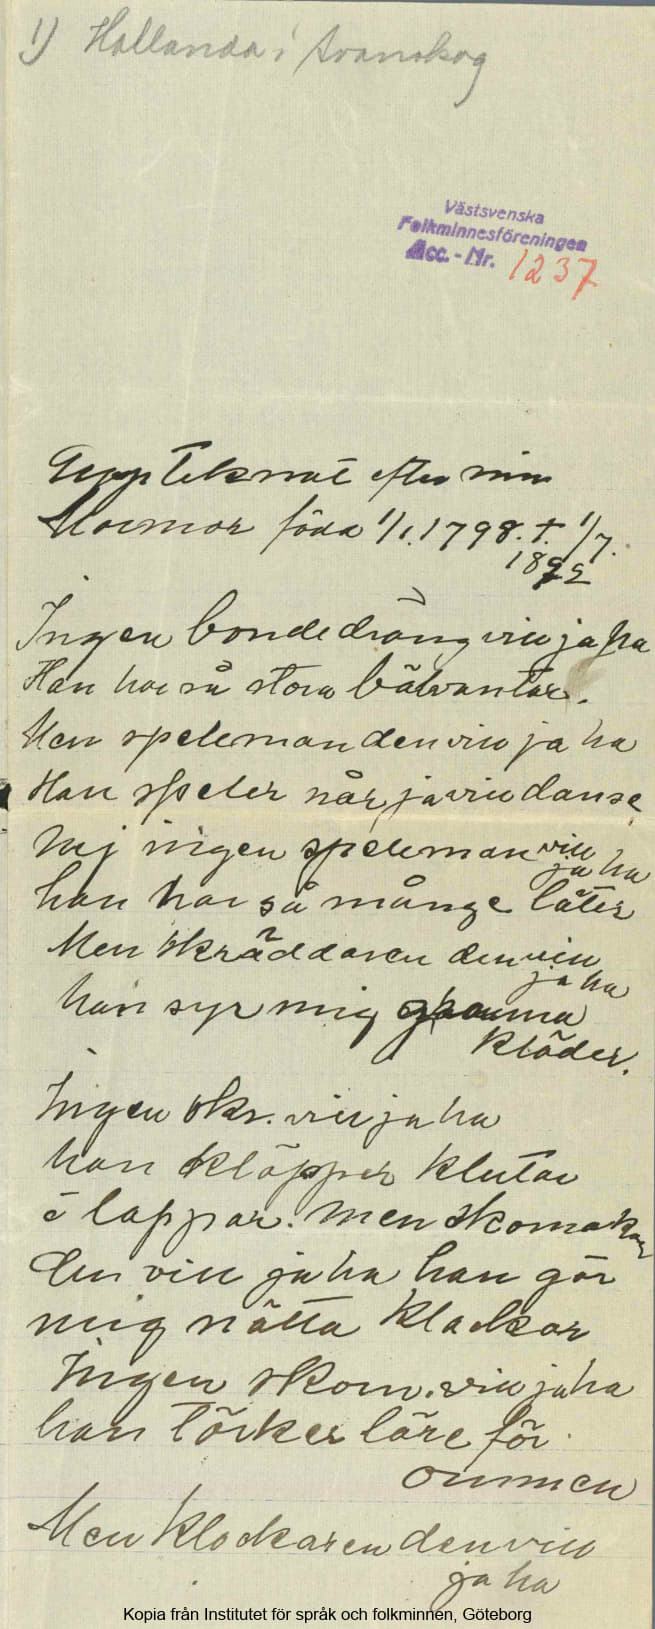 1) Hallanda i Svanskog
Västsvenska
Folkminnesföreningen
Acc. - Nr. 1237
Uppteknat efter min
Mormor föda 1/1. 1798. †. 1/7.
1892
Ingen bondedräng vill ja ha
Han har så stora bälvantar.
Men speleman den vill ja ha
Han speler när ja vill danse
Nej ingen speleman vill
ja ha
han har så många låter
Men skräddaren den vill
ja ha
han syr mig granna
kläder.
Ingen skr. vill ja ha
han klöpper klutar
å lappar. Men skomakar
den vill ja ha han gör
mig nätta klackar
Ingen skom. vill ja ha
han törker läre för
ommen
Men klockaren den vill
ja ha
Kopia från Institutet för språk och folkminnen, Göteborg